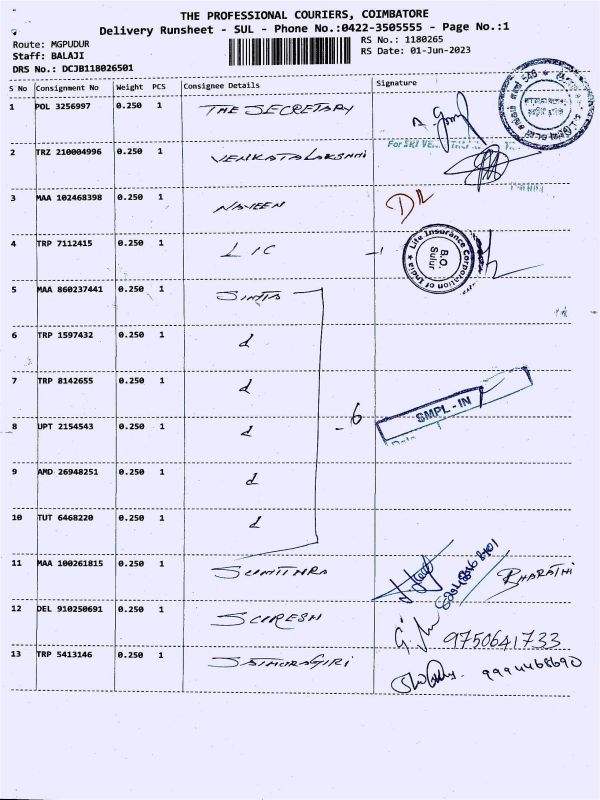 THE PROFESSIONAL COURIERS, COIMBATORE
Delivery Runsheet - SUL - Phone No.:0422-3505555 - Page No.:1
Route: MGPUDUR
Staff: BALAJI
DRS No.: DCJB118026501
RS No.: 1180265
RS Date: 01-Jun-2023
S No Consignment No Weight PCS Consignee Details Signature
1 POL 3256997 0.250 1 THE SECRETARY
For SRI
2 TRZ 210004996 0.250 1 VENKATALAKSHMI
3 MAA 102468398 0.250 1 NAVEEN
4 TRP 7112415 0.250 1 LIC -1
Life Insurance Corporation of India
B.O.
Sulur
5 MAA 860237441 0.250 1
6 TRP 1597432 0.250 1 d
7 TRP 8142655 0.250 1 d
- 6
SMPL - IN
8 UPT 2154543 0.250 1 d
9 AMD 26948251 0.250 1 d
10 TUT 6468220 0.250 1 d
11 MAA 100261815 0.250 1 SUMITHRA BHARATHI
12 DEL 910250691 0.250 1 SURESH 9750641733
13 TRP 5413146 0.250 1 9994468690